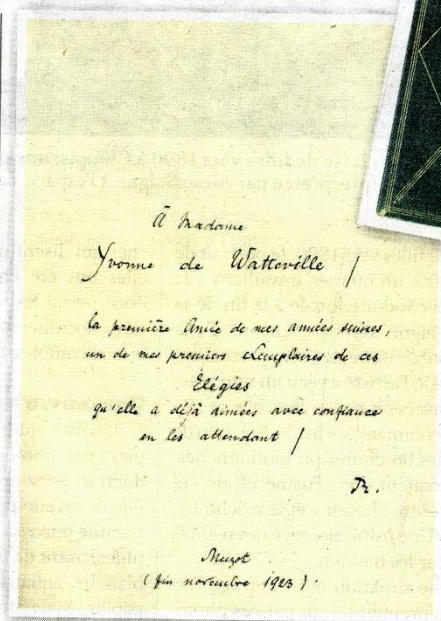 À Madame
Yvonne de Watteville /
la première Amie de mes années suisses,
un de mes premiers exemplaires de ces
Elégies
qu'elle a déjà aimées avec confiance
en les attendant /
R.
Muzot
(fin novembre 1923).